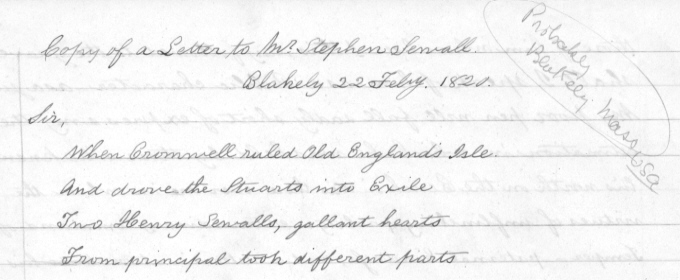 Copy of a Letter to Mr. Stephen Sewall.
Blakely 22 Feby. 1820.
Probably
Blakely Mass USA
Sir,
When Cromwell ruled Old England's Isle.
And drove the Stuarts into Exile
Two Henry Sewalls, gallant hearts
From principal took different parts